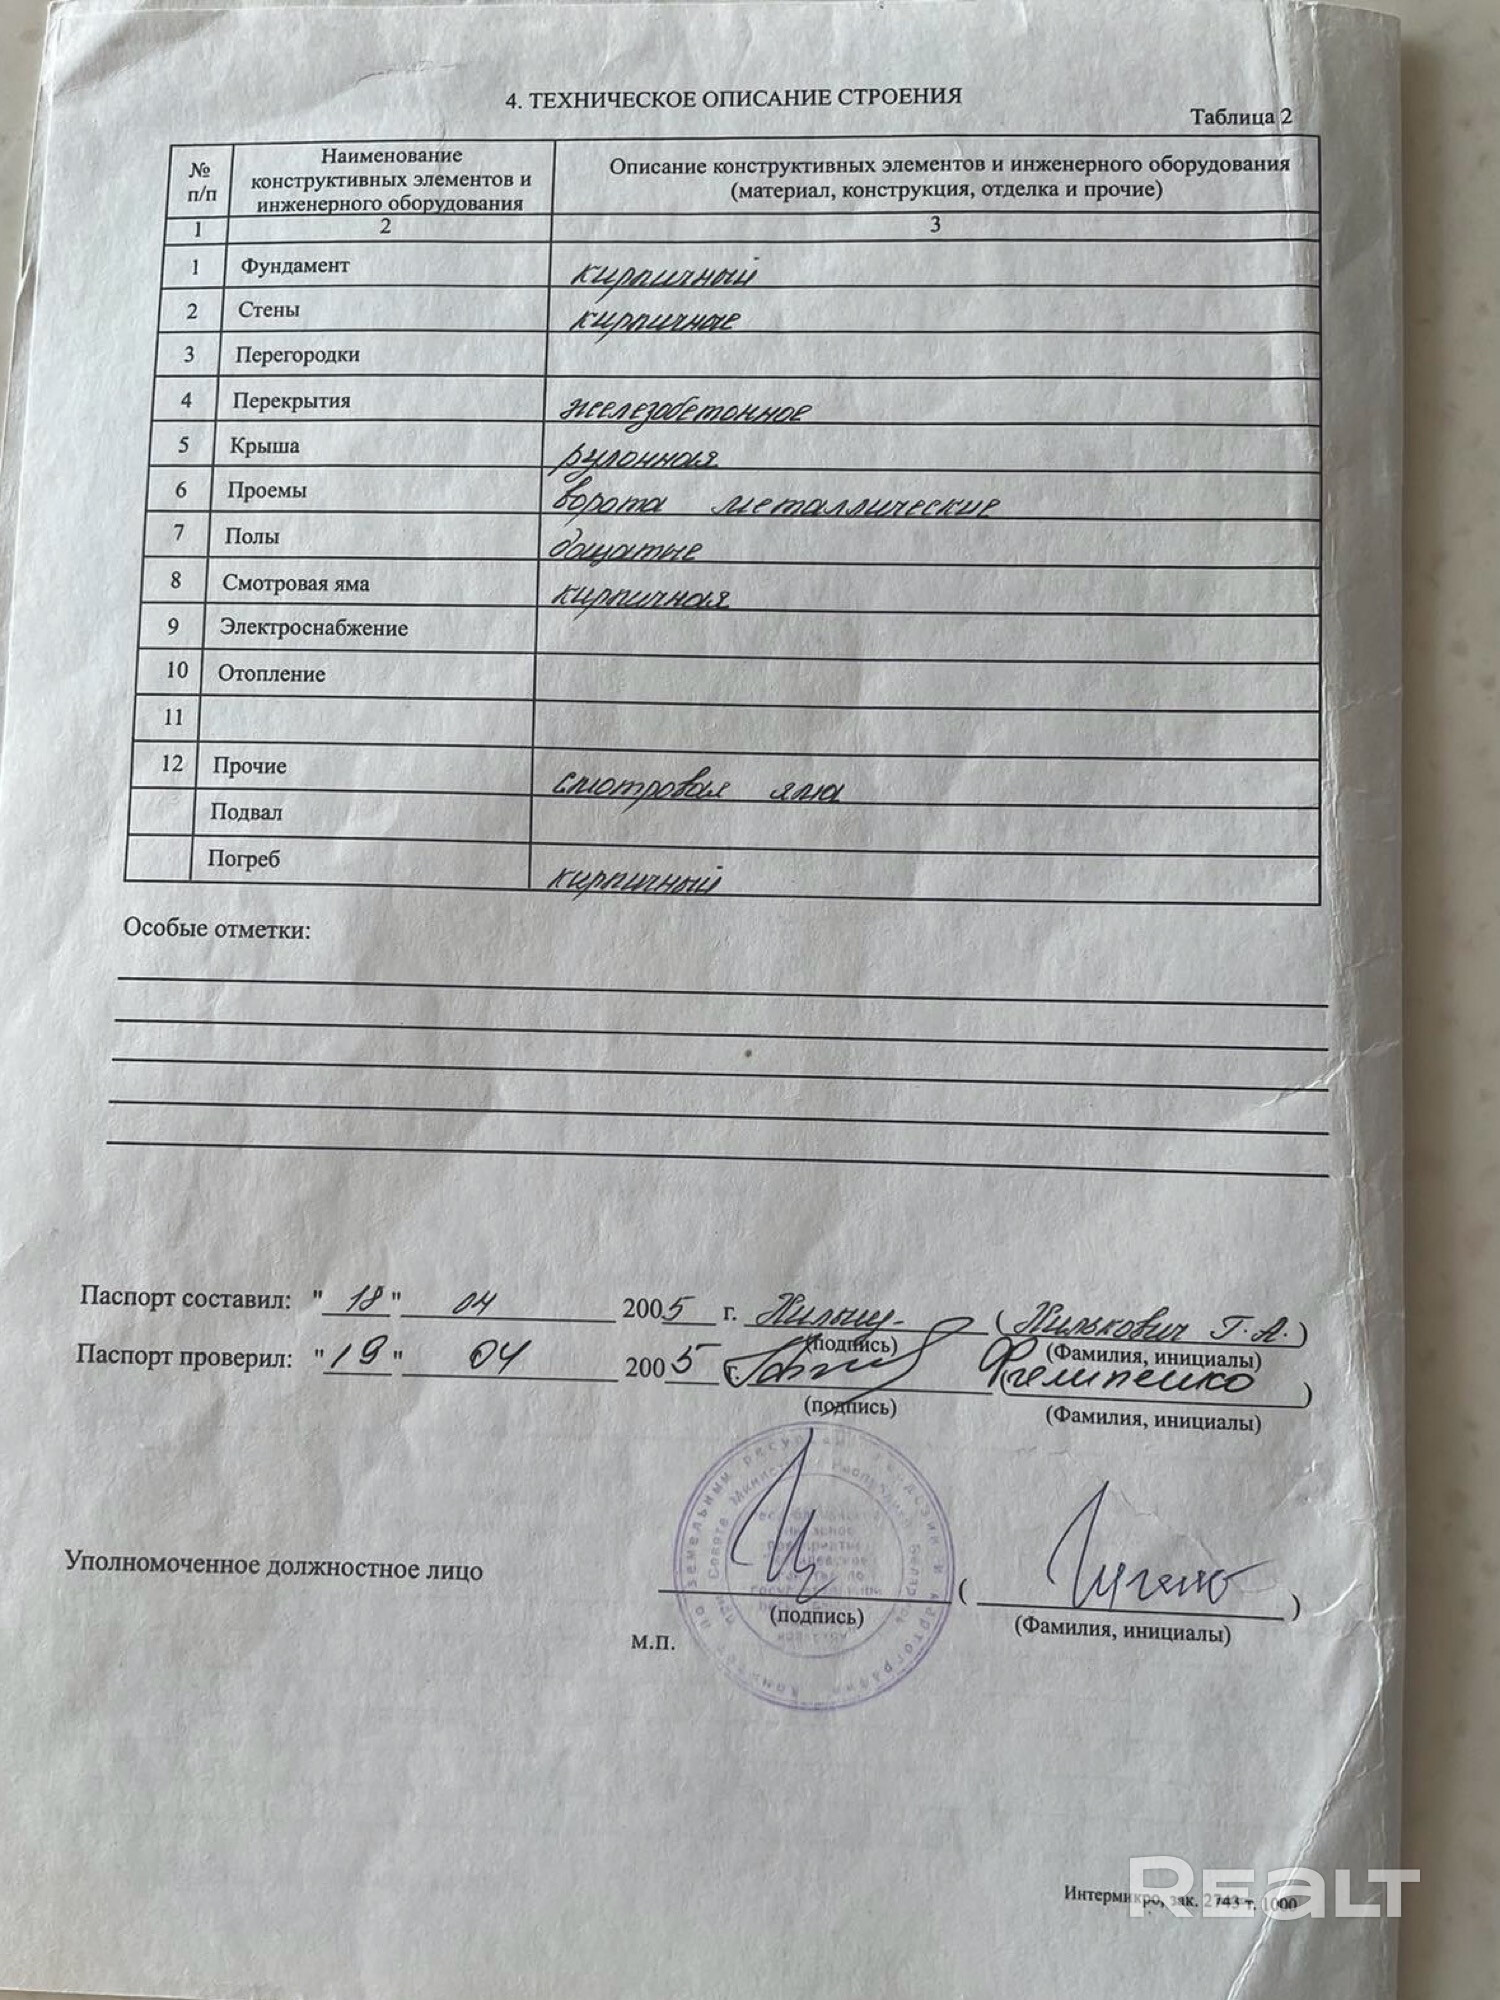 4. ТЕХНИЧЕСКОЕ ОПИСАНИЕ СТРОЕНИЯ
Таблица 2
№ п/п Наименование конструктивных элементов и инженерного оборудования Описание конструктивных элементов и инженерного оборудования (материал, конструкция, отделка и прочие)
1 2 3
1 Фундамент кирпичный
2 Стены кирпичные
3 Перегородки
4 Перекрытия железобетонное
5 Крыша рулонная
6 Проемы ворота металлические
7 Полы дощатые
8 Смотровая яма кирпичная
9 Электроснабжение
10 Отопление
11
12 Прочие смотровая яма
Подвал
Погреб кирпичный
Особые отметки:
Паспорт составил: "18" 04 2005 г. (Жилькович Г.А.)
(подпись) (Фамилия, инициалы)
Паспорт проверил: "19" 04 2005 г. (Филипенко)
(подпись) (Фамилия, инициалы)
Уполномоченное должностное лицо ( )
(подпись) (Фамилия, инициалы)
М.П.
Интермикро, зак. 2743 т. 1000
REALT